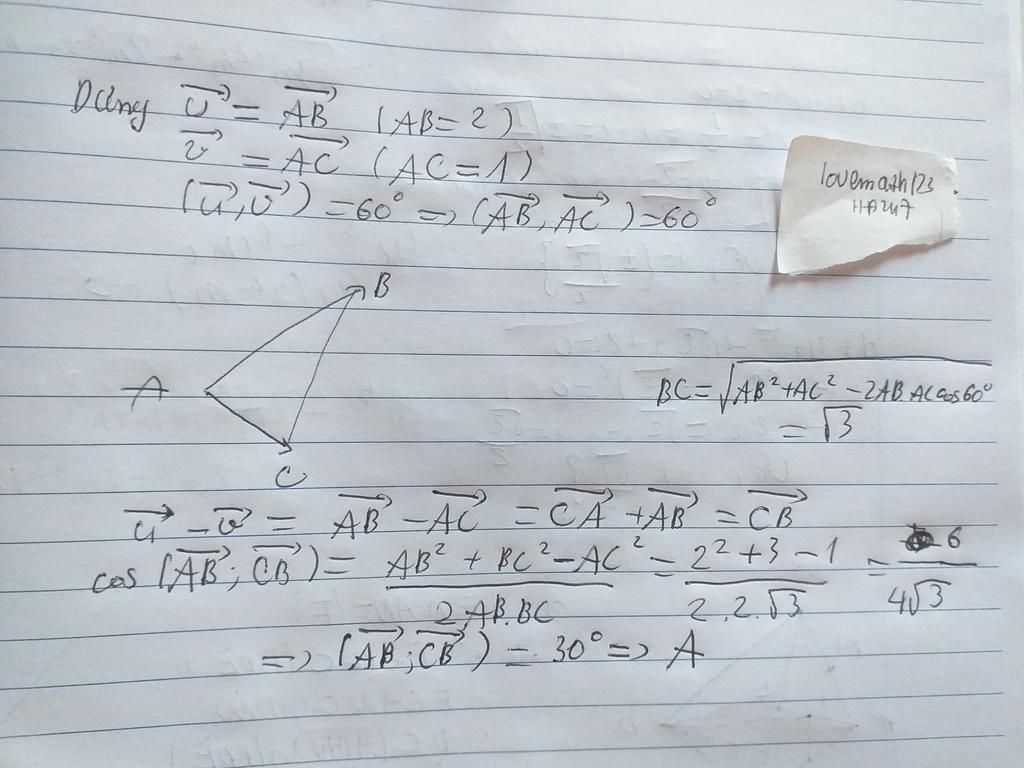 Dựng $\overrightarrow{u} = \overrightarrow{AB}$ (AB = 2)
$\overrightarrow{v} = \overrightarrow{AC}$ (AC = 1)
$(\overrightarrow{u}, \overrightarrow{v}) = 60° => (\overrightarrow{AB}, \overrightarrow{AC}) = 60°$
lovemath123
HP247
B
A
C
$BC = \sqrt{AB^2 + AC^2 - 2AB.AC\cos 60°}$
$= \sqrt{3}$
$\overrightarrow{u} - \overrightarrow{v} = \overrightarrow{AB} - \overrightarrow{AC} = \overrightarrow{CA} + \overrightarrow{AB} = \overrightarrow{CB}$
$\cos(\overrightarrow{AB}; \overrightarrow{CB}) = \frac{AB^2 + BC^2 - AC^2}{2.AB.BC} = \frac{2^2 + 3 - 1}{2.2.\sqrt{3}} = \frac{6}{4\sqrt{3}}$
$=> (\overrightarrow{AB}; \overrightarrow{CB}) = 30° => A$